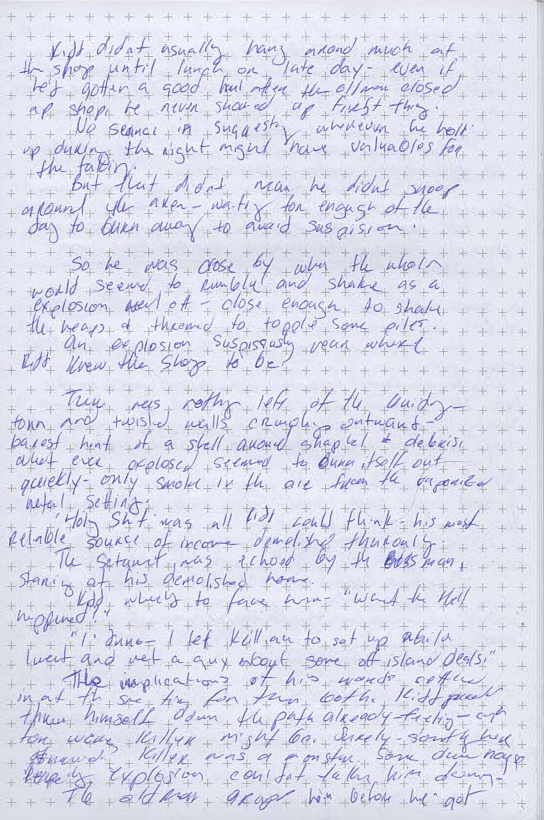 Kidd didnt usually hang around much at
the shop until lunch or late day - even if
he'd gotten a good haul often the old man closed
up shop, he never showed up first thing.
No sense in suggesting wherever he holed
up during the night might have valuables for
the taking.
But that didnt mean he didnt snoop
around the area - waiting for enough of the
day to burn away to avoid suspision.
So he was close by when the whole
world seemed to rumble and shake as a
explosion went off - close enough to shake
the heaps & threatend to topple some piles.
An explosion suspisously near where
Kidd knew the shop to be.
There was nothing left of the building -
torn and twisted walls crumpling outward -
barest hint of a shell around shrapnel & debris.
what ever exploded seemed to burn itself out
quickly - only smoke in the air from the
metal setting.
'Holy Shit' was all Kidd could think - his most
reliable source of income demolished thuroughly.
The setiment was echoed by the boss man,
staring at his demolished home.
Kidd to face him - "what the Hell
happened?"
"I: dunno - I left Killer to set up while
I went and met a guy about some off island deals!"
The implications of his words settled
in at the same time for them both. Kidd
thrown himself down the path already -
Killer might be. Surely - surely
Killer was a monster. Some damn
explosion couldnt take him down -
The old man him before he got